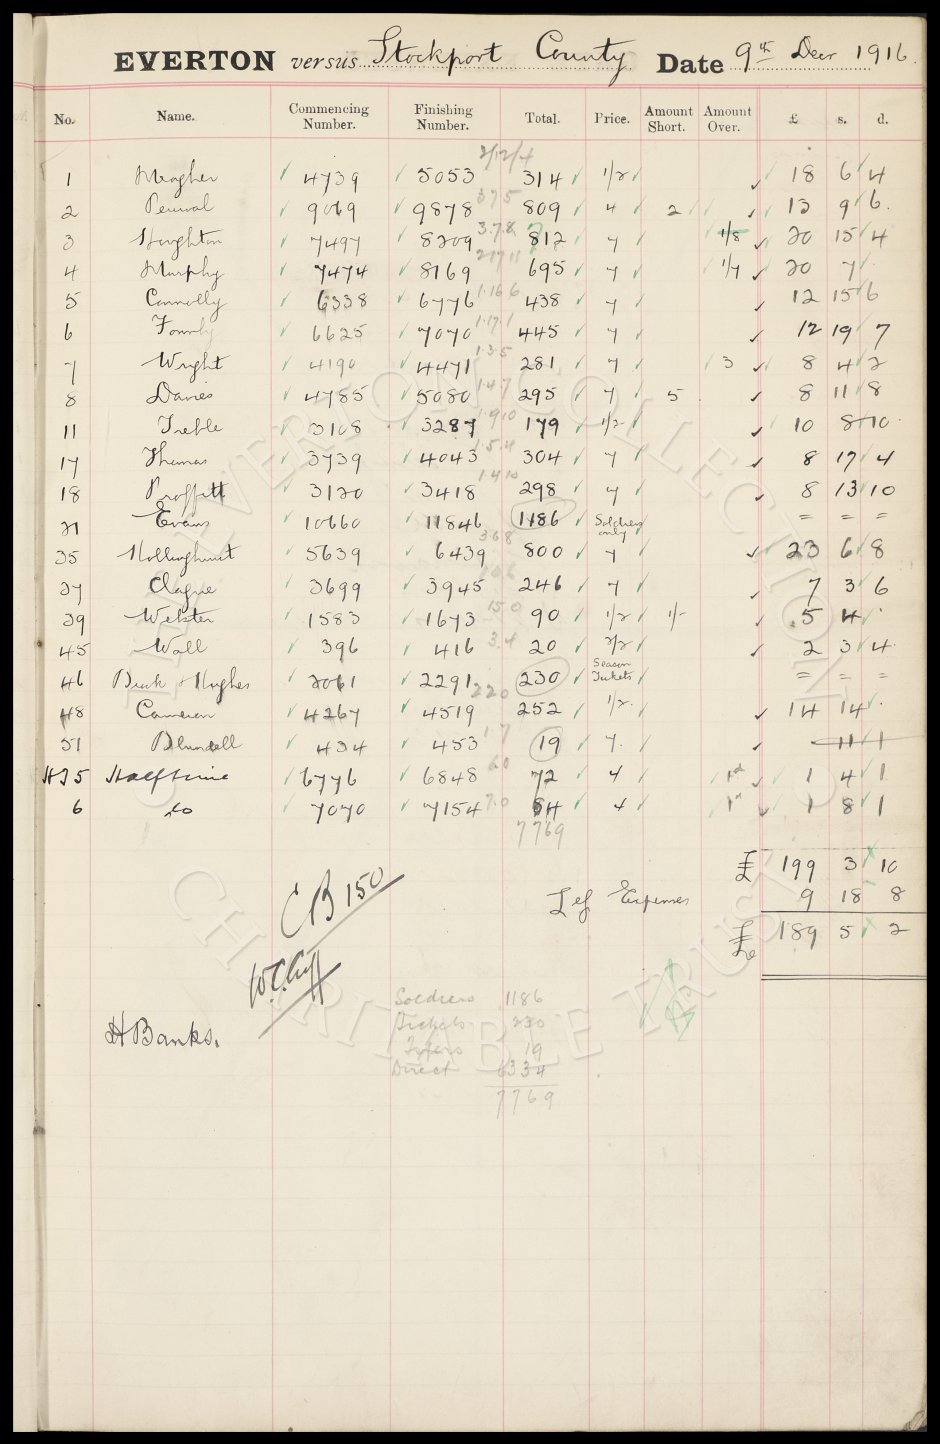 EVERTON versus Stockport County Date 9th Decr 1916.
No. Name. Commencing Number. Finishing Number. Total. Price. Amount Short. Amount Over. £ s. d.
2/12/4
1 Meagher 4739 5053 314 1/2 18 6 4
2 Percival 9069 9878 375 809 4 2 13 9 6.
3 Houghton 7497 8309 3.7.8 812 7 1/8 20 15 4
4 Murphy 7474 8169 21711 695 7 1/7 20 7
5 Connolly 6338 6776 1.16 6 438 7 12 15 6
6 6625 7070 1.17.1 445 7 12 19 7
7 Wright 4190 4471 1.3.5 281 7 3 8 4 2
8 Davies 4785 5080 1.4.7 295 7 5 8 11 8
11 Treble 3108 3287 1.9.10 179 1/2 10 8 10
17 Thomas 3739 4043 1.5.4 304 7 8 17 4
18 Proffitt 3120 3418 1.4.10 298 7 8 13 10
21 Evans 10660 11846 1186 Soldiers only = = =
35 Hollinghurst 5639 6439 3.6.8 800 7 23 6 8
37 Clague 3699 3945 246 7 7 3 6
39 Webster 1583 1673 15 0 90 1/2 1/- 5 4
45 Wall 396 416 3.4 20 2/2 2 3 4
46 Buck & Hughes 2061 2291 230 Season Tickets = = =
48 Cameron 4267 4519 220 252 1/2 14 14
51 Blundell 434 453 1 7 19 7. 11 1
HT5 Halftime 6776 6848 6.0 72 4 1d 1 4 1
6 do 7070 7154 7.0 84 4 1d 1 8 1
7769
£ 199 3 10
CB 150
Less Expenses 9 18 8
£ 189 5 2
W.C.Cuff
H Banks.
Soldiers 1186
Tickets 230
19
Direct 6334
7769
EVERTON COLLECTION
CHARITABLE TRUST